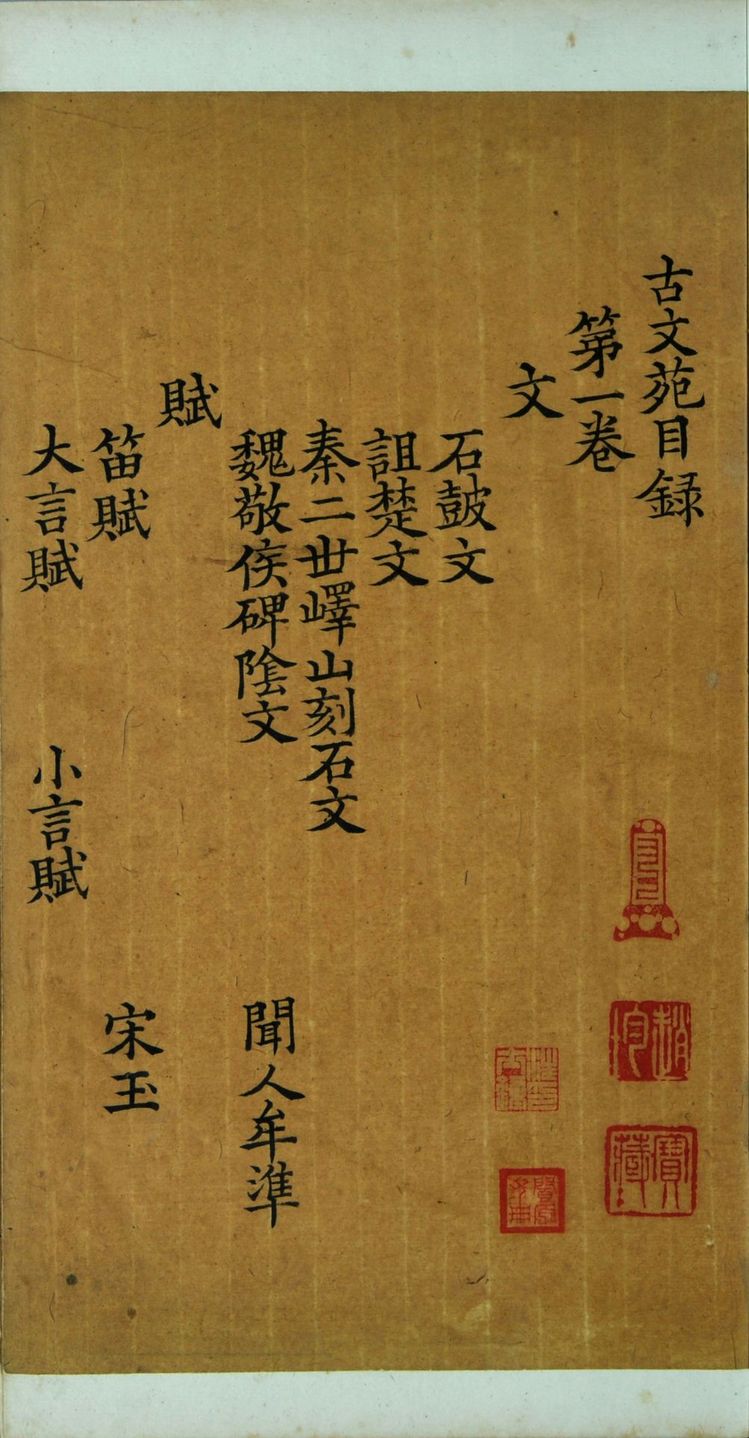 古文苑目録
第一卷
文
石皷文
詛楚文
秦二世嶧山刻石文
魏敬侯碑陰文 聞人牟準
賦
笛賦 宋玉
大言賦 小言賦
趙恂
寶藏